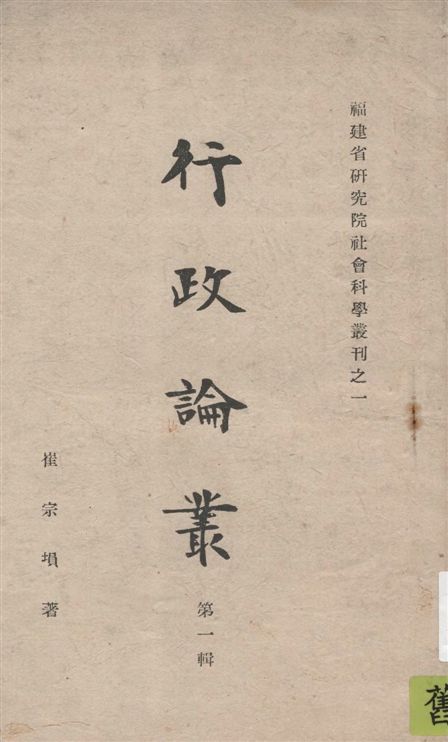 福建省研究院社會科學叢刊之一
行政論叢
第一輯
崔宗塤著
舊